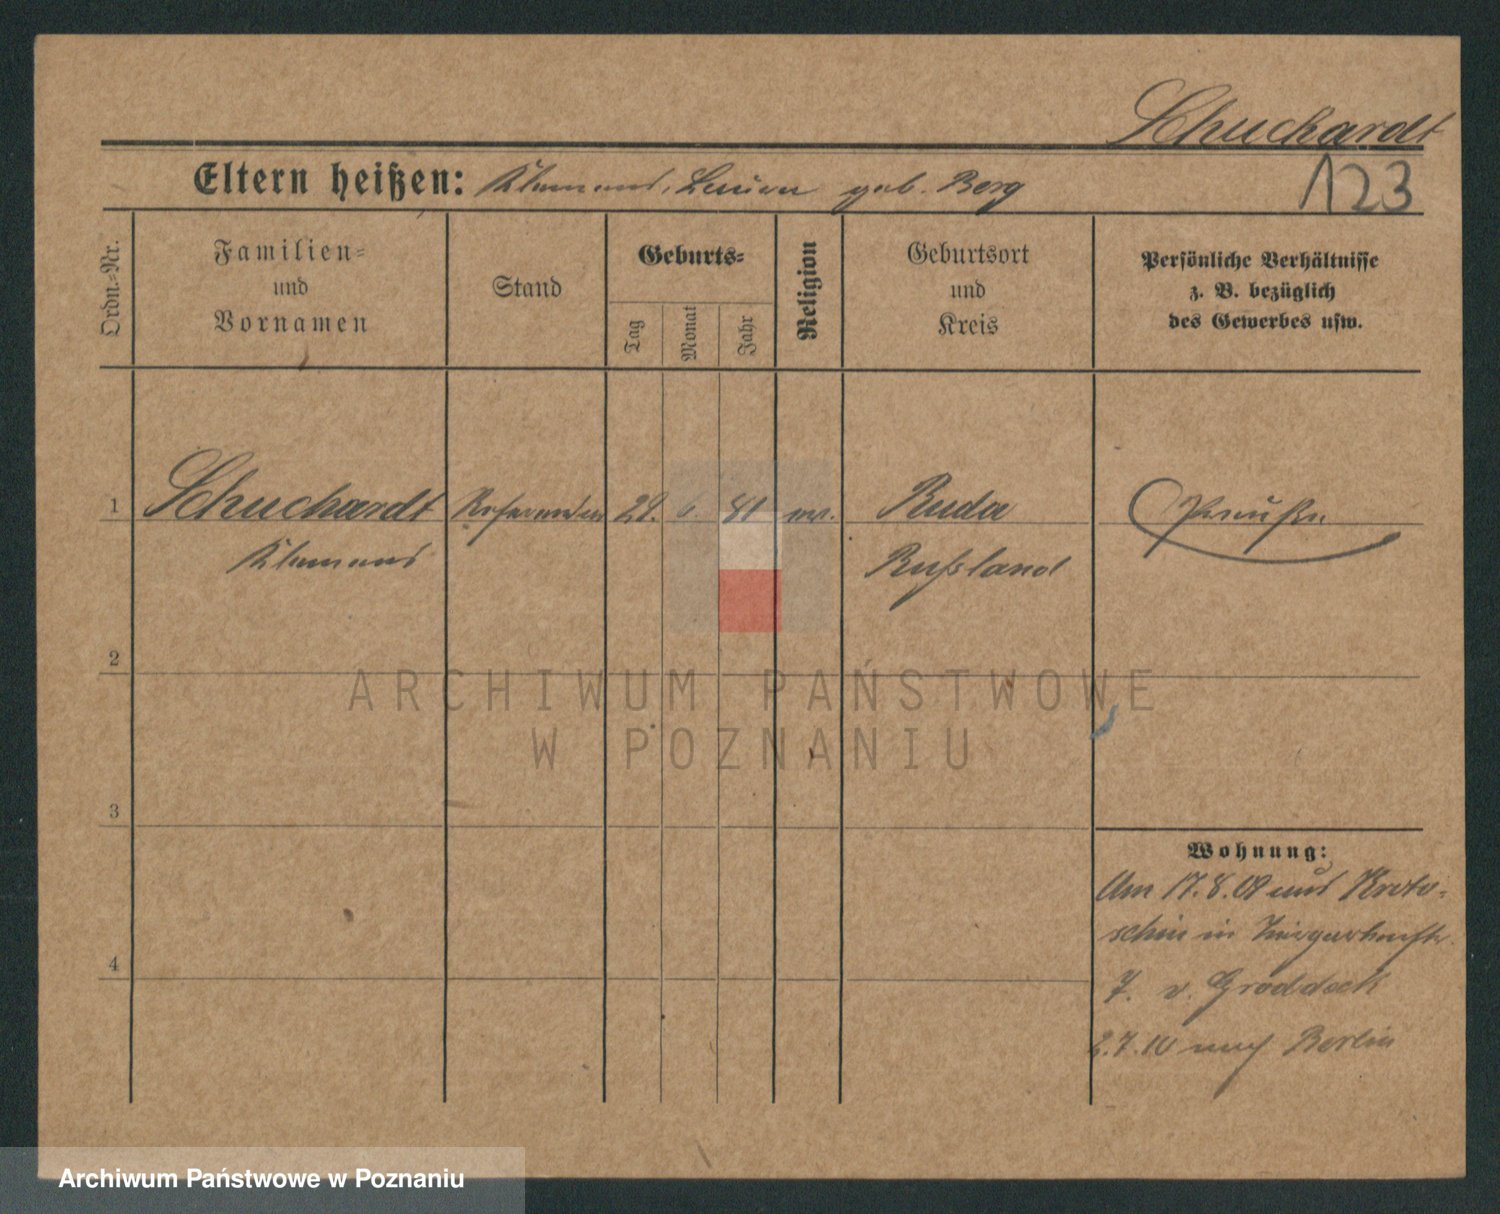 Schuchardt
Eltern heißen: Klemens, Luise geb. Berg
123
Ordn.-Nr.
Familien-
und
Vornamen
Stand
Geburts-
Tag
Monat
Jahr
Religion
Geburtsort
und
Kreis
Persönliche Verhältnisse
z. B. bezüglich
des Gewerbes usw.
1 Schuchardt Referendar 28. 6. 81 ev. Ruda Preuße
Klemens Rußland
2
ARCHIWUM PAŃSTWOWE
W POZNANIU
3
Wohnung:
Am 17.8.09 aus Kroto-
schin in
7. v. Groddeck
2.7.10 nach Berlin
4
Archiwum Państwowe w Poznaniu